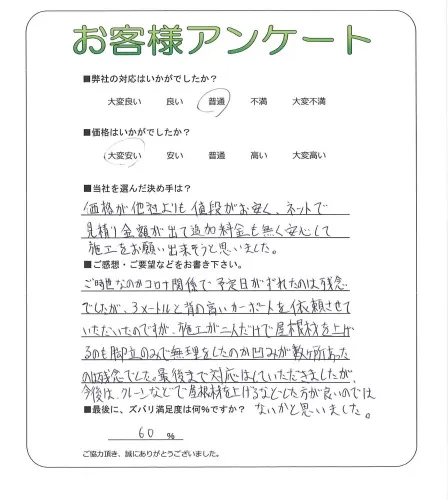 お客様アンケート
■弊社の対応はいかがでしたか？
大変良い 良い 普通 不満 大変不満
■価格はいかがでしたか？
大変安い 安い 普通 高い 大変高い
■当社を選んだ決め手は？
価格が他社よりも値段がお安く、ネットで
見積り金額が出て追加料金も無く安心して
施工をお願い出来そうと思いました。
■ご感想・ご要望などをお書き下さい。
ご時世なのかコロナ関係で予定日がずれたのは残念
でしたが、3メートルと背の高いカーポートを依頼させて
いただいたのですが、施工が二人だけで屋根材を上げ
るのも脚立のみで無理をしたのか凹みが数ヶ所あった
のは残念でした。最後まで対応はしていただきましたが、
今後は、クレーンなどで屋根材を上げるなどした方が良いのでは
ないかと思いました。
■最後に、ズバリ満足度は何%ですか？
60 %
ご協力頂き、誠にありがとうございました。